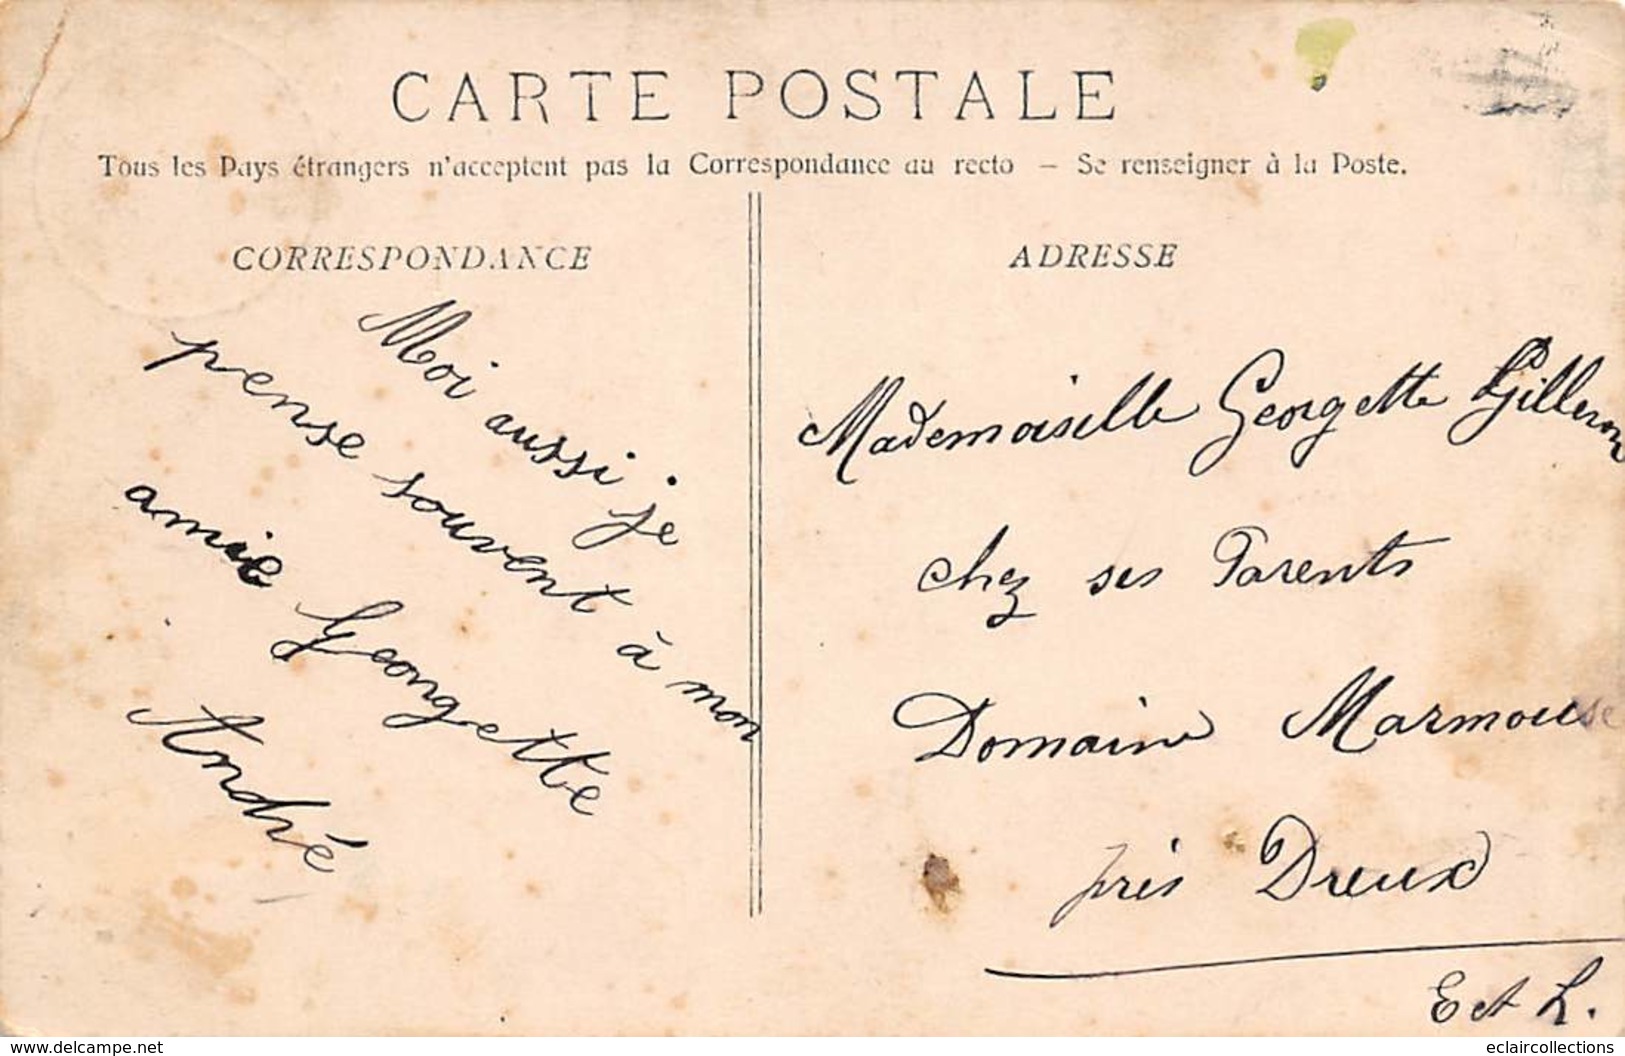 CARTE POSTALE
Tous les Pays étrangers n'acceptent pas la Correspondance au recto — Se renseigner à la Poste.
CORRESPONDANCE
Moi aussi je
pense souvent à mon
amie Georgette
André
ADRESSE
Mademoiselle Georgette Gilleron
chez ses Parents
Domaine Marmousse
près Dreux
E et L.
delcampe.net
eclaircollections